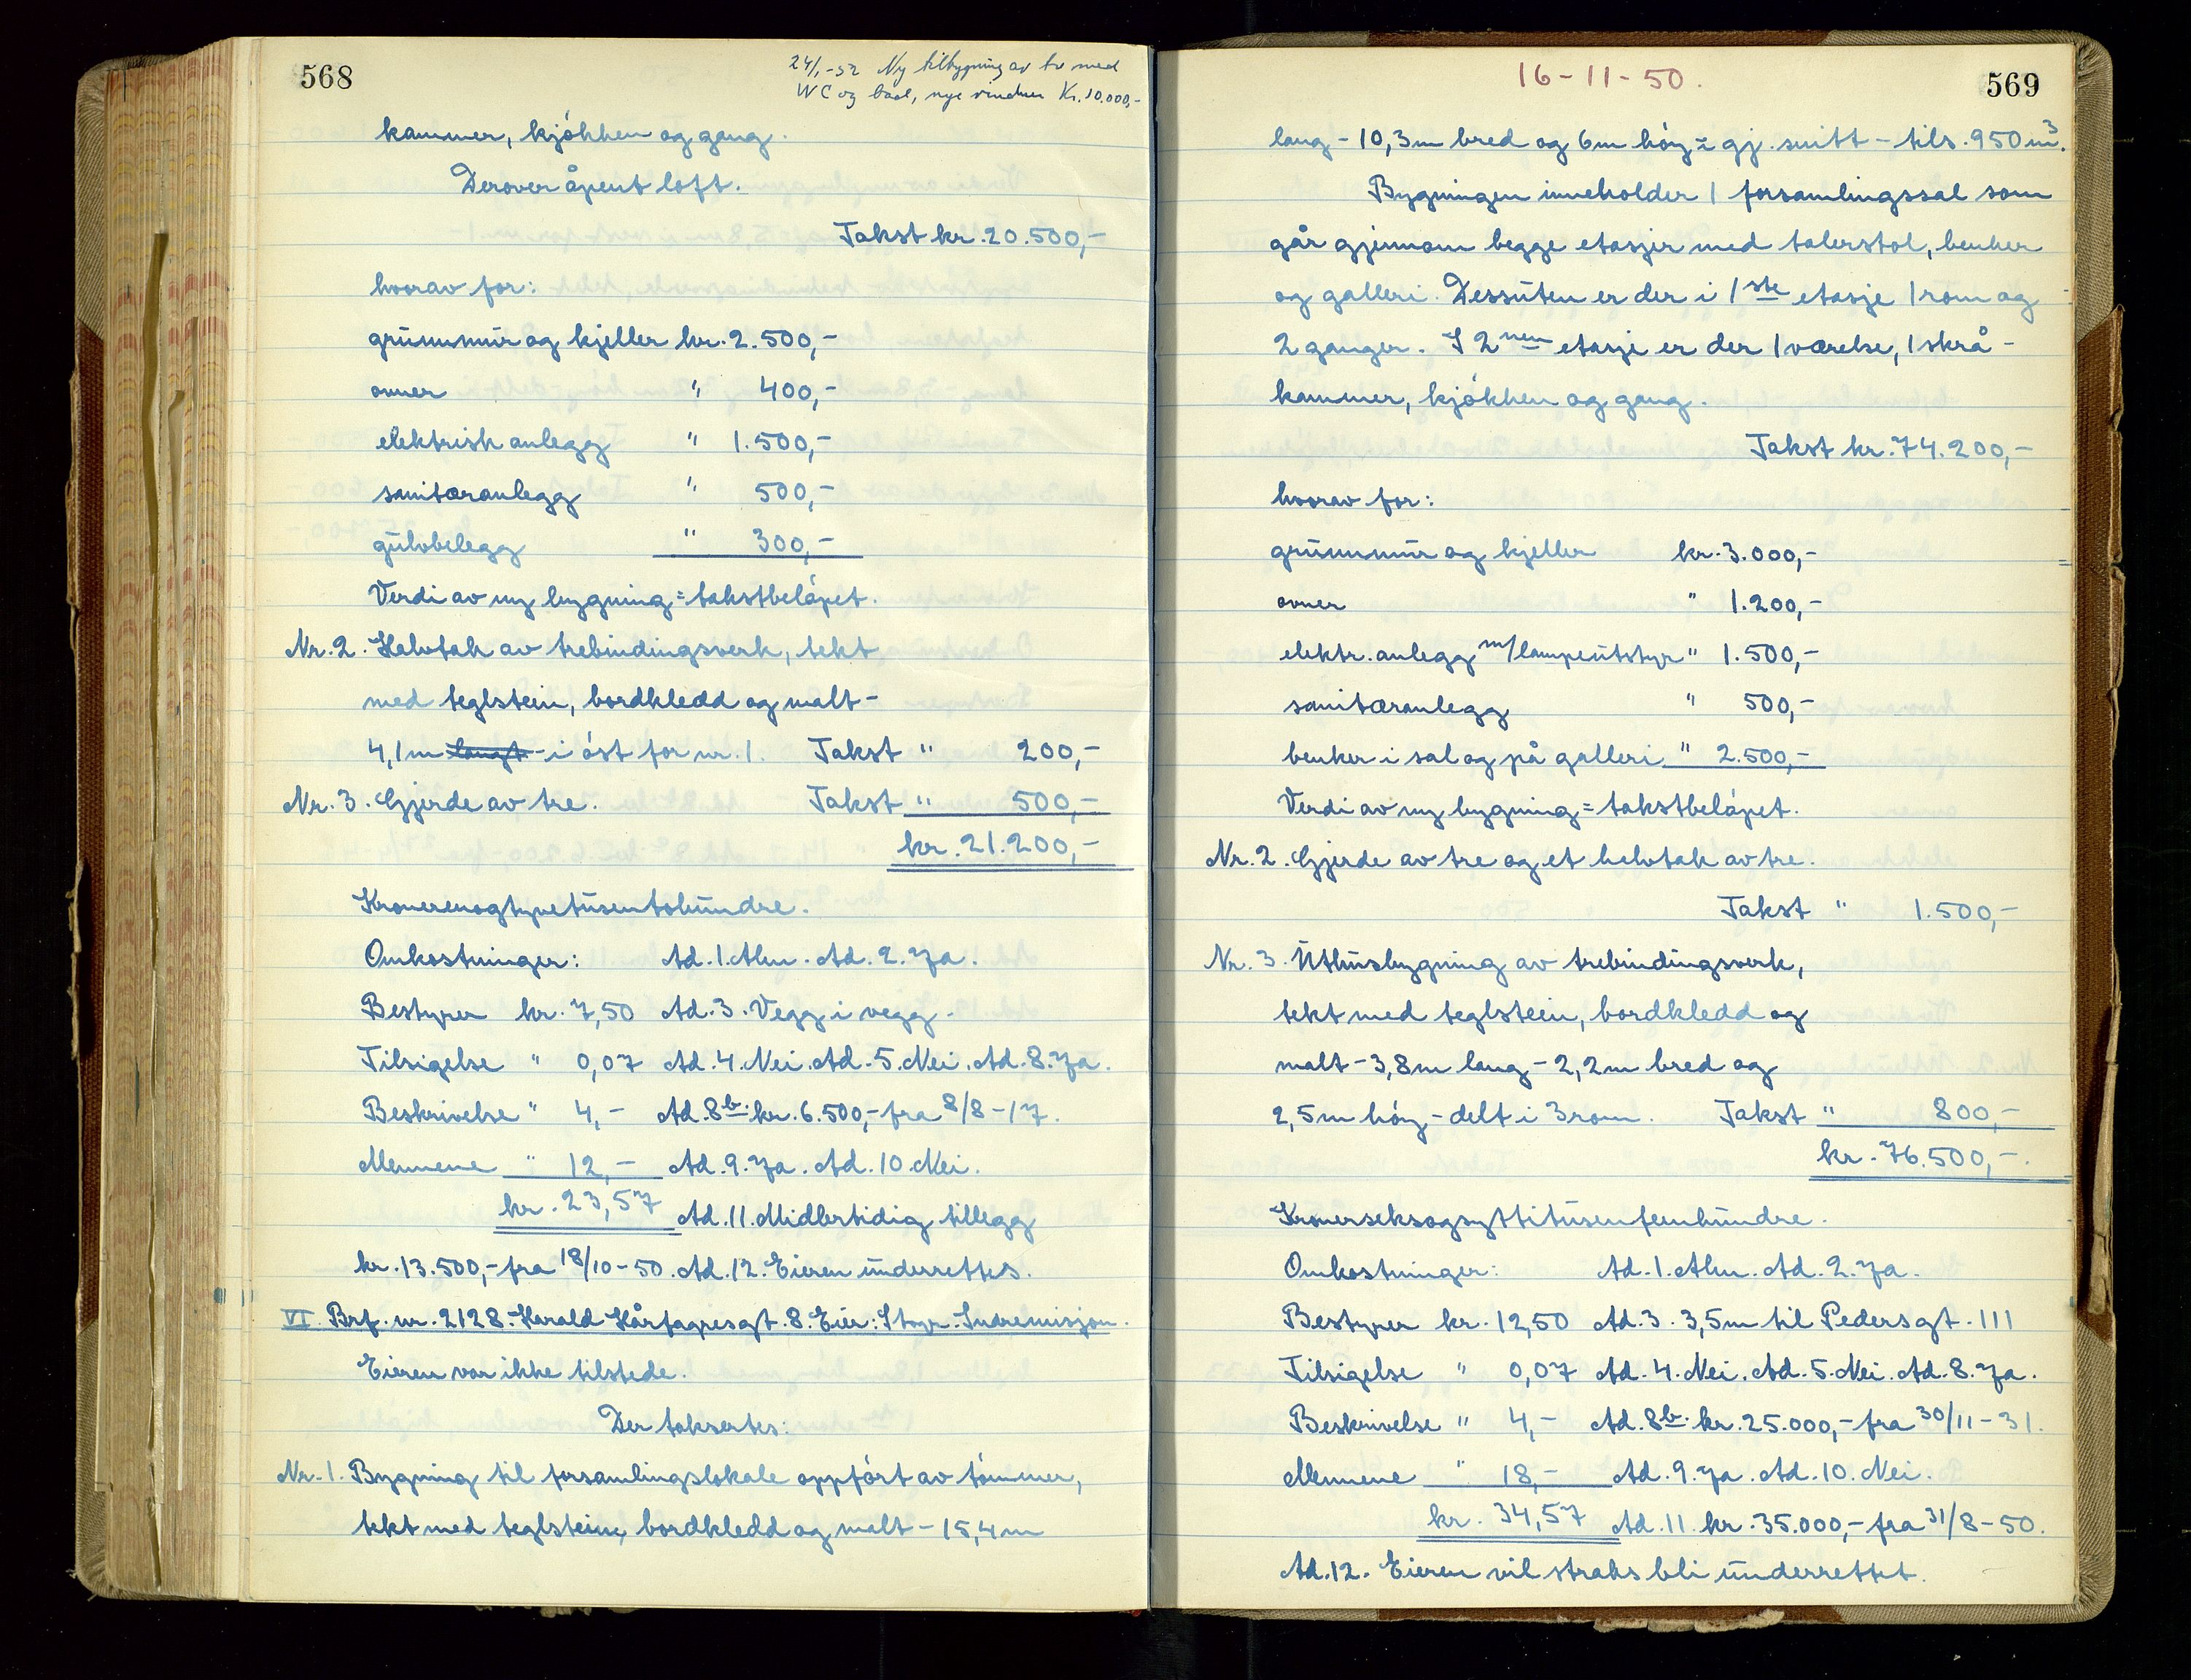 568
24/1-52 Ny tilbygning av tre med
WC og bad, nye vinduer Kr. 10.000,-
kammer, kjökken og gang.
Derover åpent loft.
Takst kr. 20.500,-
hvorav for:
grunnmur og kjeller kr. 2.500,-
ovner " 400,-
elektrisk anlegg " 1.500,-
sanitæranlegg " 500,-
gulvbelegg " 300,-
Verdi av ny bygning = takstbelöpet.
Nr. 2. Halvtak av trebindingsverk, tekt
med teglstein, bordkledd og malt -
4,1m langt i öst for nr. 1. Takst " 200,-
Nr. 3. Gjerde av tre. Takst " 500,-
kr. 21.200,-
Kronerenogtyvetusentohundre.
Omkostninger: Ad. 1. Alm. Ad. 2. Ja.
Bestyrer kr. 7,50 Ad. 3. Vegg i vegg.
Tilsigelse " 0,07 Ad. 4. Nei. Ad. 5. Nei. Ad. 8. Ja.
Beskrivelse " 4,- Ad. 8b. kr. 6.500,- fra 8/8-17.
Mennene " 12,- Ad. 9. Ja. Ad. 10. Nei.
kr. 23,57 Ad. 11. Midlertidig tillegg
kr. 13.500,- fra 18/10-50. Ad. 12. Eieren underrettes.
VI. Brf. nr. 2128. Harald Hårfagresgt. 8. Eier: Stvgr. Indremisjon.
Eieren var ikke tilstede.
Der taksertes:
Nr. 1. Bygning til forsamlingslokale oppfört av tömmer,
tekt med teglstein, bordkledd og malt - 15,4m
16-11-50.
569
lang - 10,3m bred og 6m höy i gj. snitt - tils. 950 m3.
Bygningen inneholder 1 forsamlingssal som
går gjennom begge etasjer med talerstol, benker
og galleri. Dessuten er der i 1ste etasje 1 rom og
2 ganger. I 2nen etasje er der 1 værelse, 1 skrå-
kammer, kjökken og gang.
Takst kr. 74.200,-
hvorav for:
grunnmur og kjeller kr. 3.000,-
ovner " 1.200,-
elektr. anlegg m/lampeutstyr " 1.500,-
sanitæranlegg " 500,-
benker i sal og på galleri " 2.500,-
Verdi av ny bygning = takstbelöpet.
Nr. 2. Gjerde av tre og et halvtak av tre.
Takst " 1.500,-
Nr. 3. Uthusbygning av trebindingsverk,
tekt med teglstein, bordkledd og
malt - 3,8m lang - 2,2m bred og
2,5m höy - delt i 3 rom. Takst " 800,-
kr. 76.500,-
Kronersekstogsyttitusenfemhundre.
Omkostninger: Ad. 1. Alm. Ad. 2. Ja.
Bestyrer kr. 12,50 Ad. 3. 3,5m til Pedersgt. 111
Tilsigelse " 0,07 Ad. 4. Nei. Ad. 5. Nei. Ad. 8. Ja.
Beskrivelse " 4,- Ad. 8b. kr. 25.000,- fra 30/11-31.
Mennene " 18,- Ad. 9. Ja. Ad. 10. Nei.
kr. 34,57 Ad. 11. kr. 35.000,- fra 31/8-50.
Ad. 12. Eieren vil straks bli underrettet.